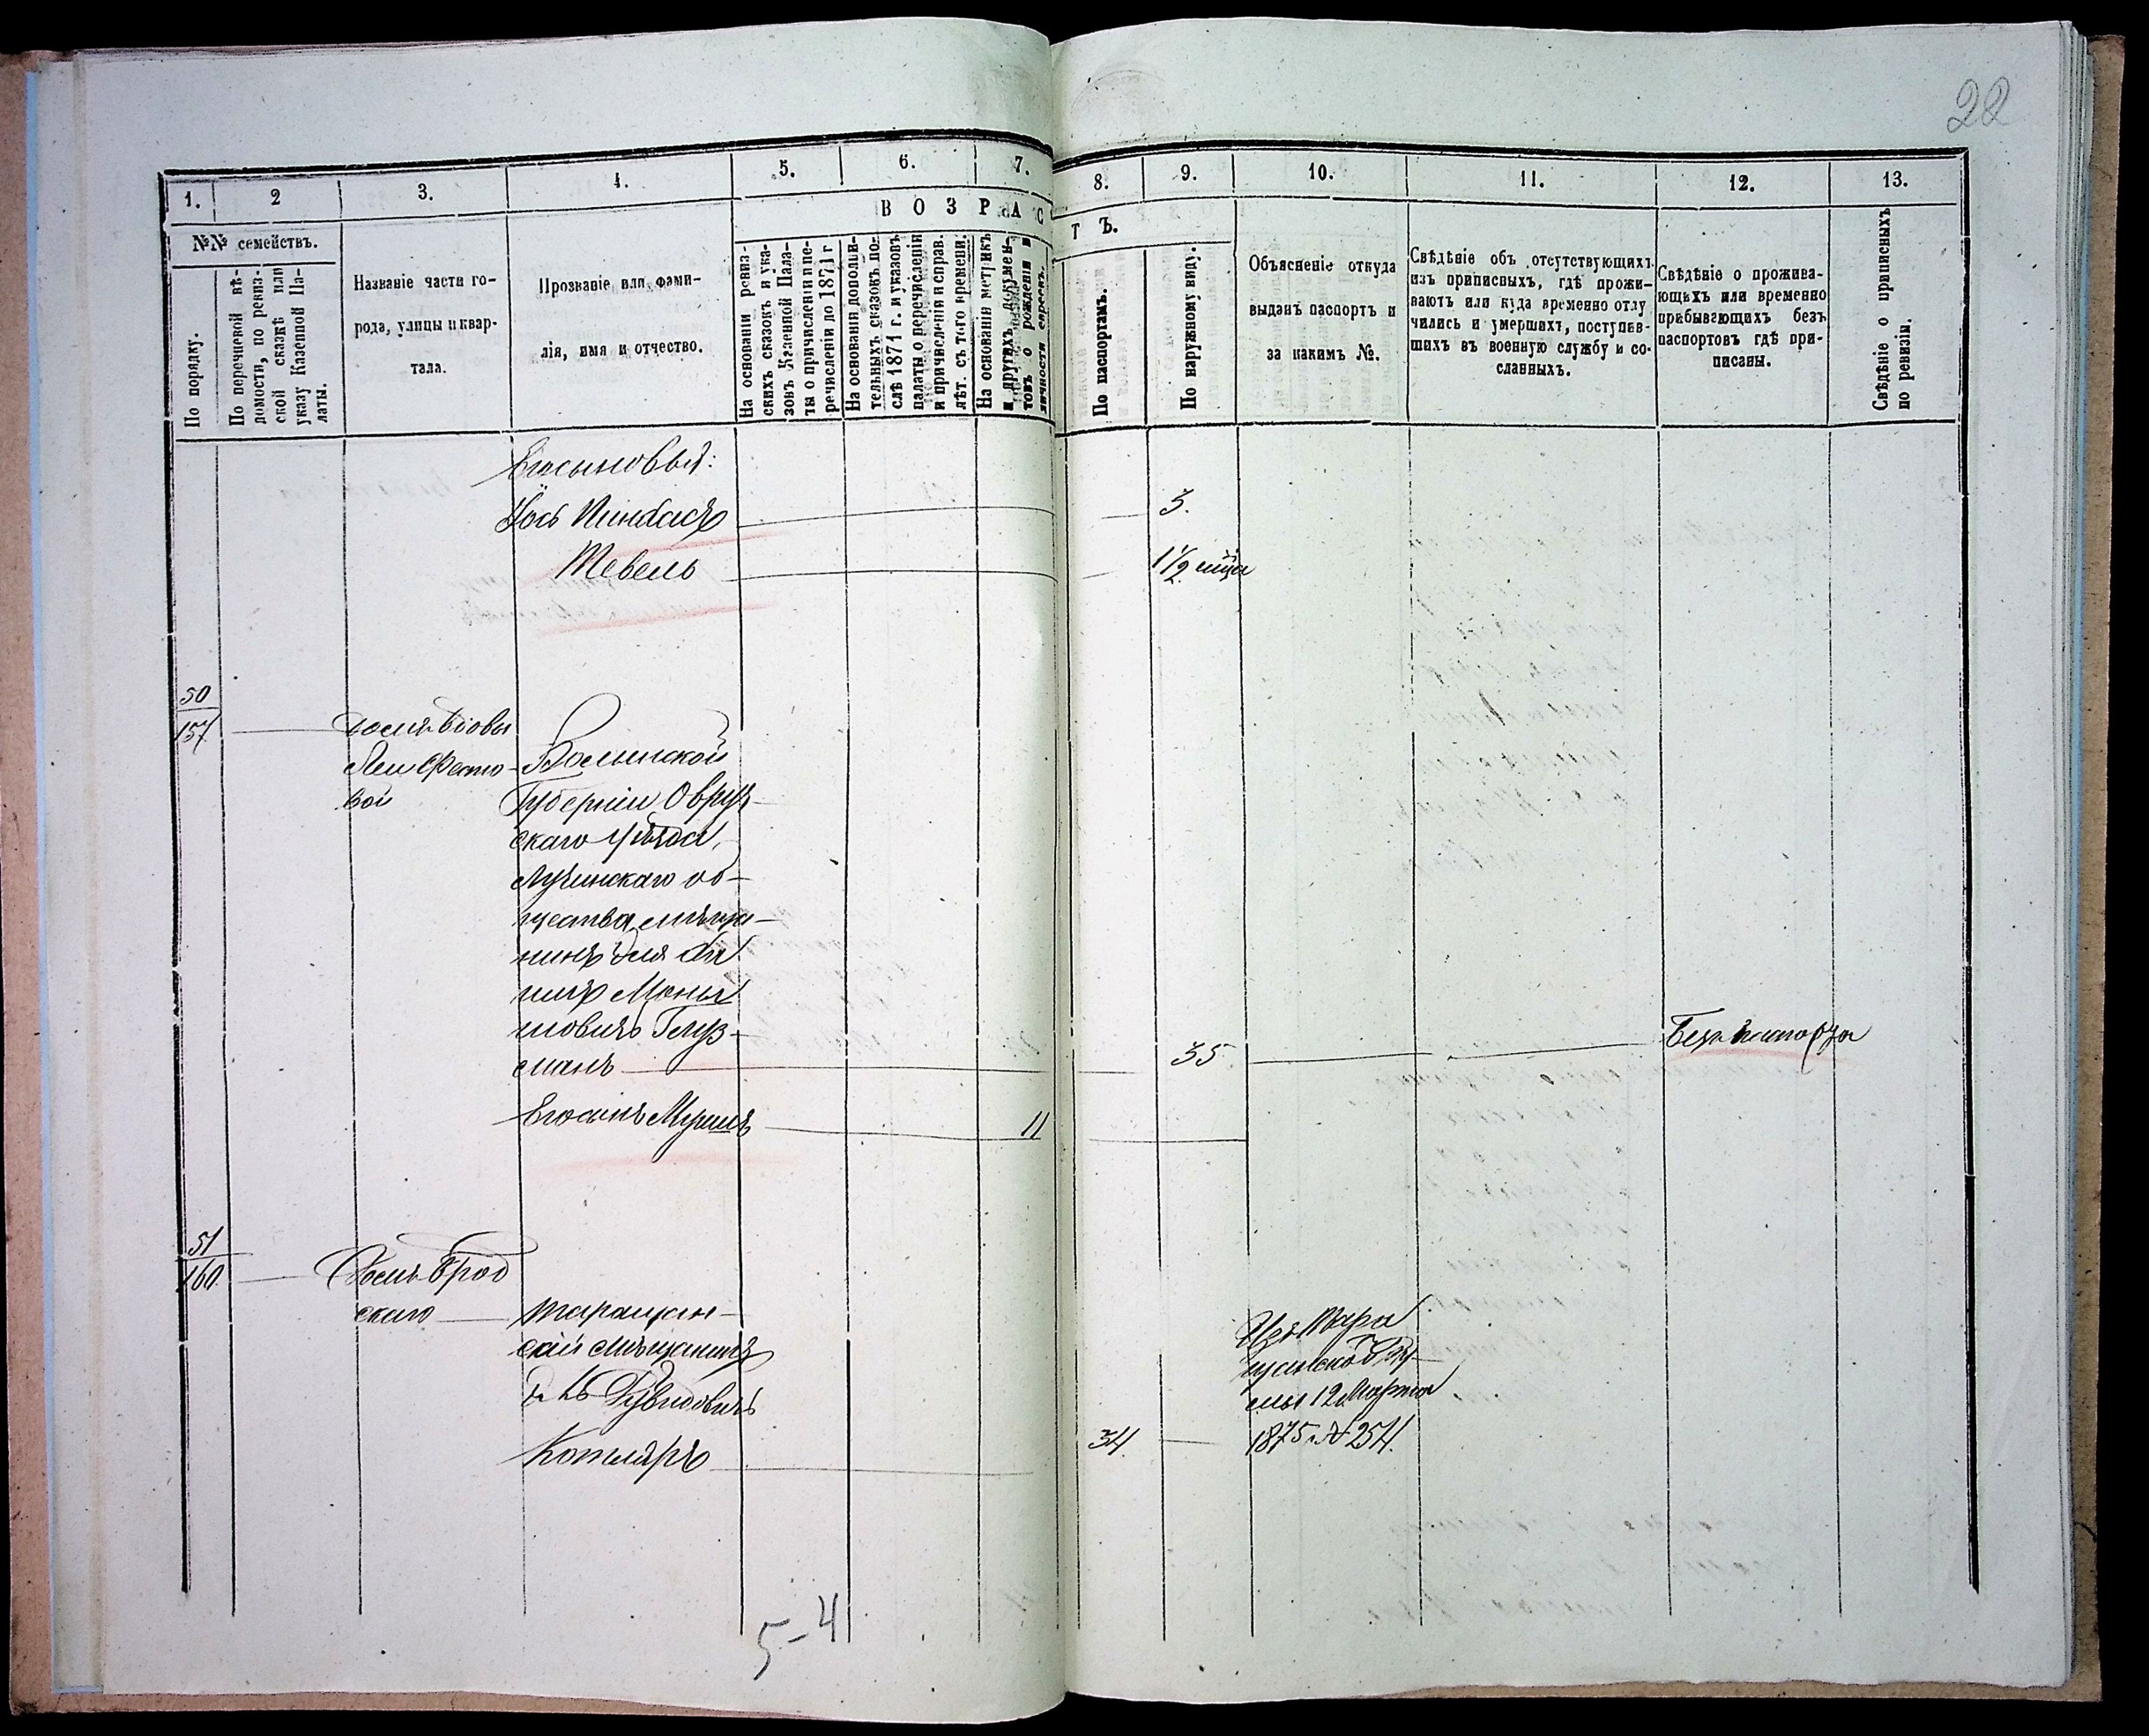 28
1.
2
3.
4.
5.
6.
7.
8.
9.
10.
11.
12.
13.
ВОЗРАСТЪ.
№№ семействъ.
По порядку.
По перечневой вѣ-
домости, по ревиз-
ской сказкѣ или
указу Казенной Па-
латы.
Названіе части го-
рода, улицы и квар-
тала.
Прозваніе или фами-
лія, имя и отчество.
На основаніи ревиз-
скихъ сказокъ и ука-
зовъ Казенной Пала-
ты о причисленіи и пе-
речисленіи до 1871 г
На основаніи дополни-
тельныхъ сказокъ по-
слѣ 1871 г. и указовъ
палаты о перечисленіи
и причисленіи и справ.
лѣт. съ того времени.
На основаніи метрикъ
и другихъ докумен-
товъ о рожденіи и
личности евреевъ.
По паспортамъ.
По наружному виду.
Объясненіе откуда
выданъ паспортъ и
за какимъ №.
Свѣдѣніе объ отсутствующихъ
изъ приписныхъ, гдѣ прожи-
ваютъ или куда временно отлу
чились и умершихъ, поступив-
шихъ въ военную службу и со-
сланныхъ.
Свѣдѣніе о прожива-
ющихъ или временно
прибывающихъ безъ
паспортовъ гдѣ при-
писаны.
Свѣдѣніе о приписныхъ
по ревизіи.
Его сыновья:
Іось Пинхасъ 3.
Тевель 1 1/2 мца
50
157 домъ вдовы
Волынской
вой Губерніи Овруч-
скаго уѣзда,
Лугинскаго об-
щества мѣща-
нинъ
Глуз-
манъ 35 Безъ паспорта
Его сынъ 11
51
160 Домъ Брод
скаго Таращан-
скій мѣщанинъ
Дувидовичъ
Котляръ 34
Изъ Тара
щанской Ду-
мы 12 Марта
1875 г. № 254.
5-4